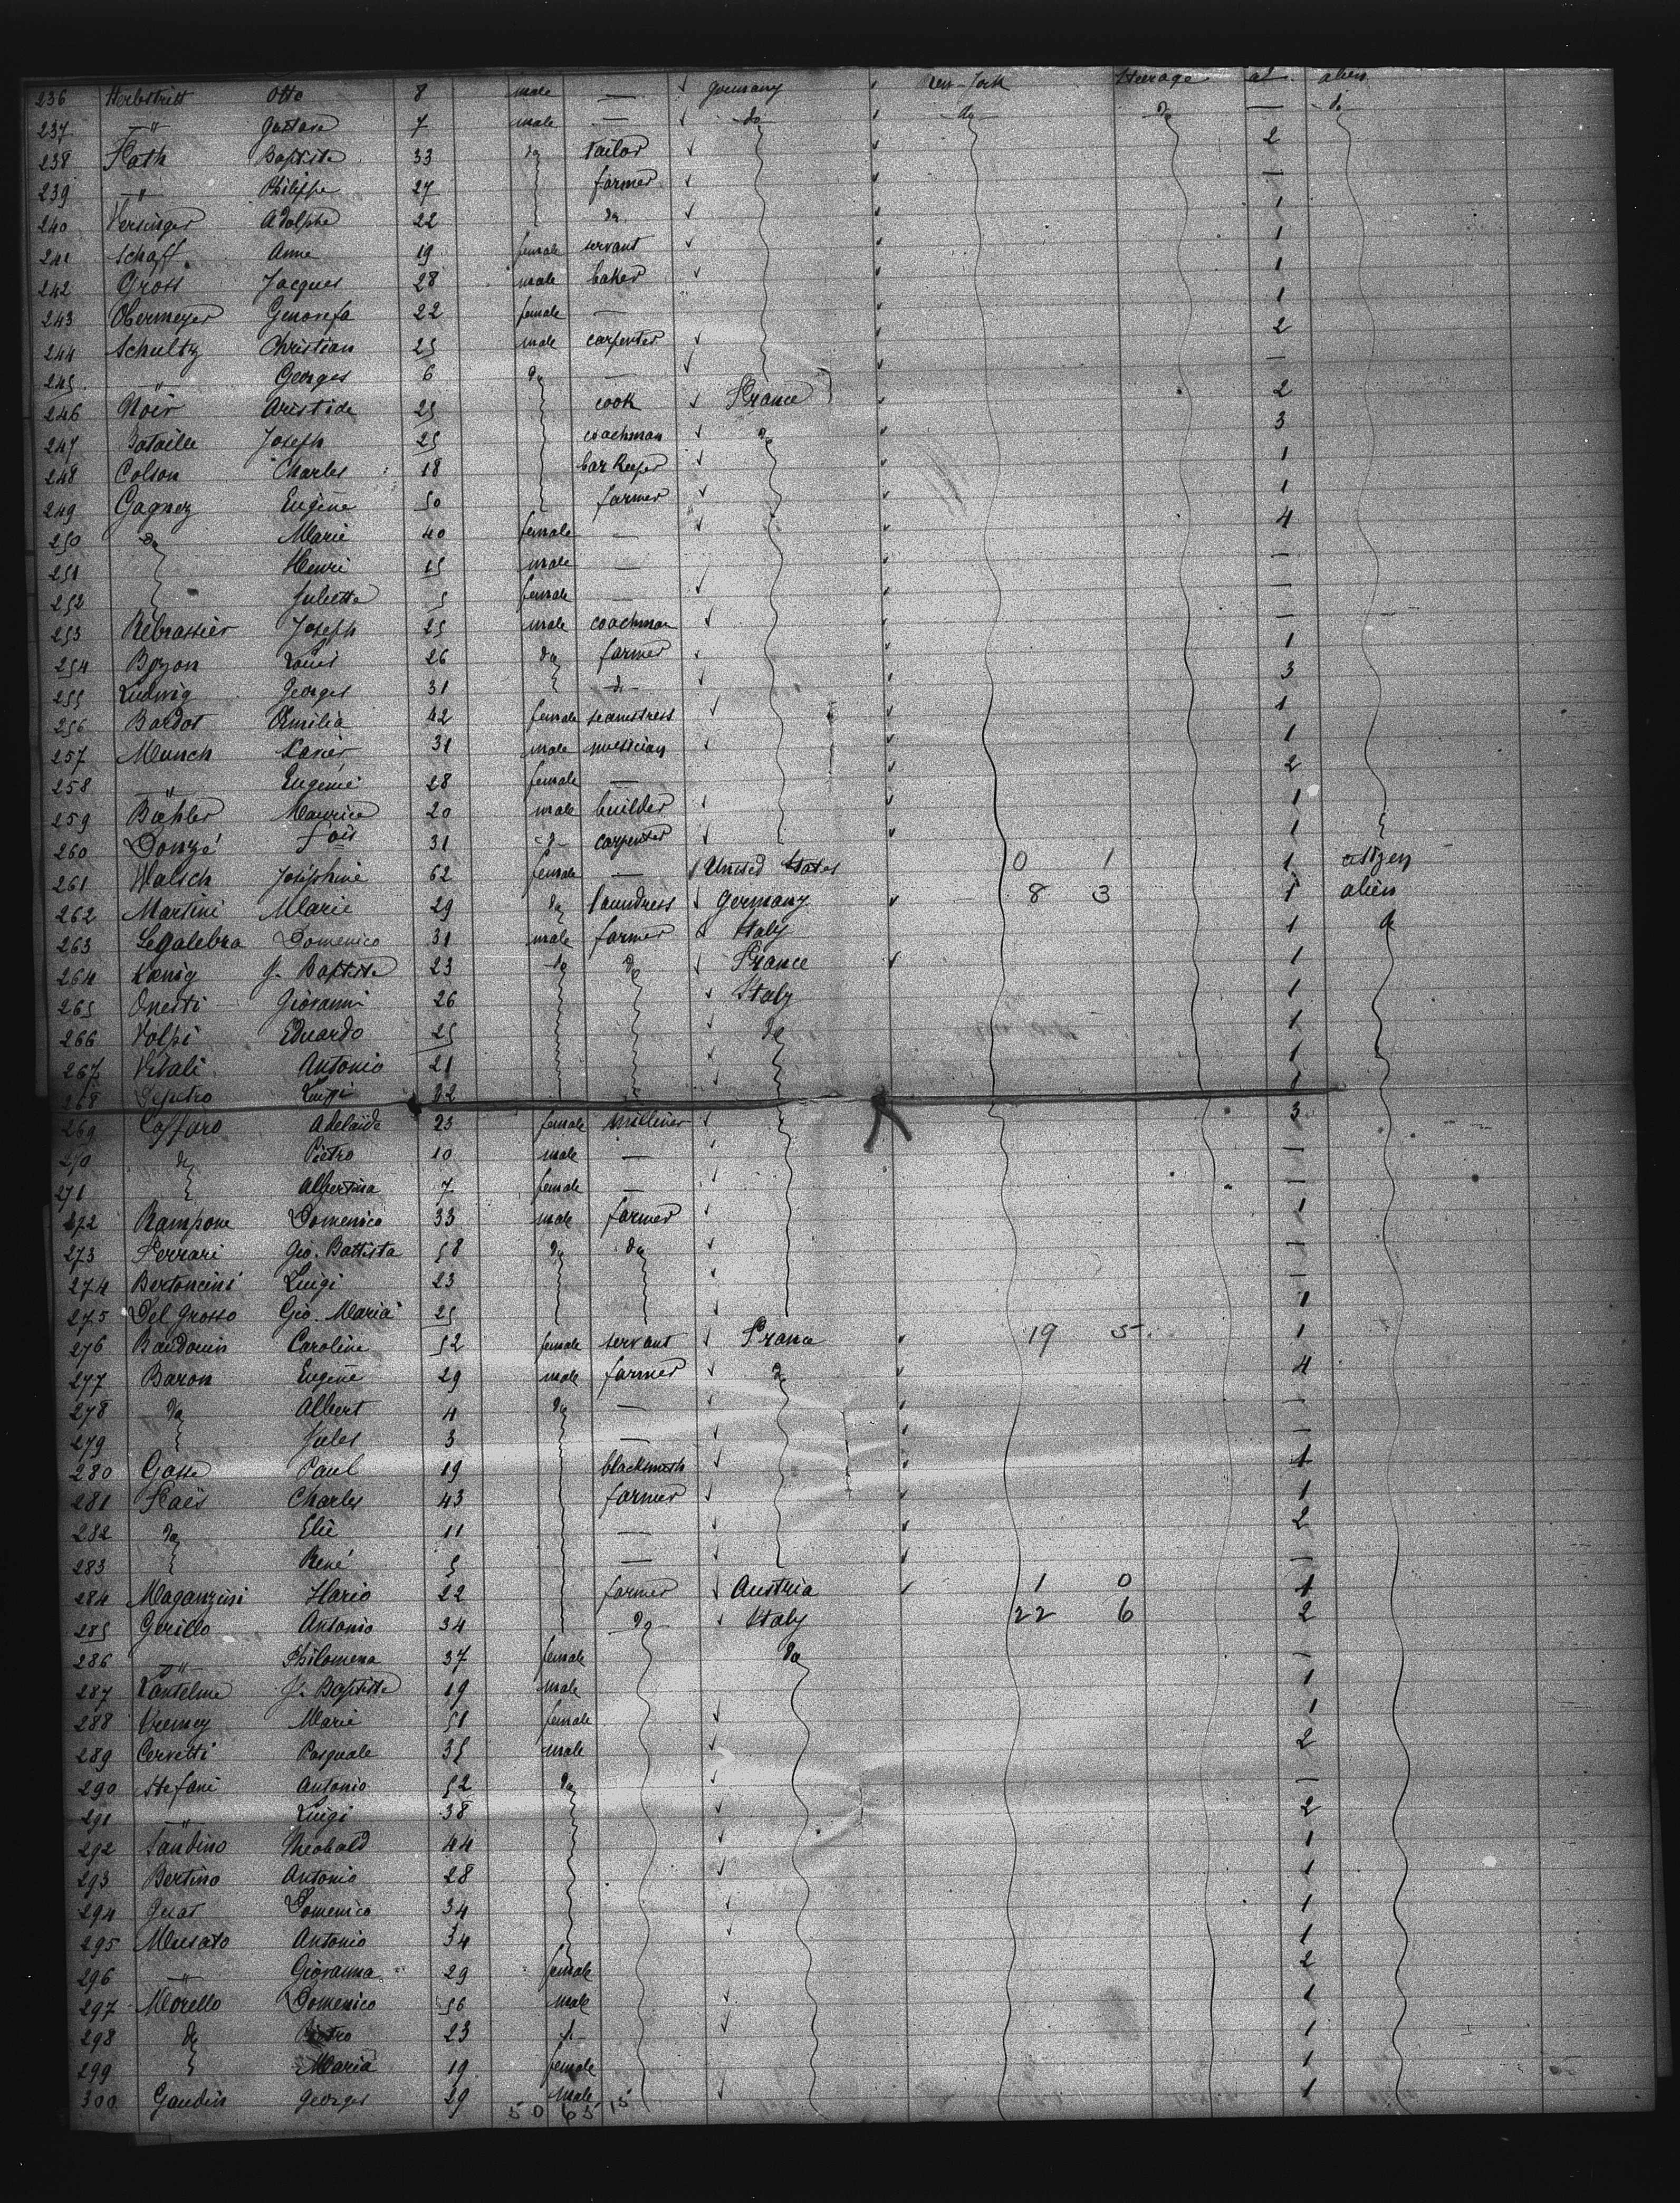 236 Herbstritt Otto 8 male — germany New-York Steerage al. alien
237 " Gustave 7 male — do do do — do
238 Fath Baptiste 33 do tailor 2
239 " Philippe 27 farmer —
240 Versinger Adolphe 22 do 1
241 Schaff Anne 19 female servant 1
242 Gross Jacques 28 male baker 1
243 Obermeyer Genovefa 22 female — 1
244 Schultz Christian 25 male carpenter 2
245 " Georges 6 do — —
246 Noir Aristide 25 cook France 2
247 Bataille Joseph 25 coachman do 3
248 Colson Charles 18 bar Keeper 1
249 Gagney Eugène 50 farmer 1
250 do Marie 40 female — 4
251 Henri 15 male — —
252 Juliette 5 female — —
253 Rebrassier Joseph 25 male coachman —
254 Bozon Louis 26 do farmer 1
255 Ludwig Georges 31 do 3
256 Bardot Emilia 42 female seamstress 1
257 Munch Xavier 31 male musician 1
258 " Eugenie 28 female — 2
259 Bæhler Maurice 20 male builder 1
260 Donzé 31 do carpenter 1
261 Walsch Joséphine 62 female — United States 0 1 1 citizen
262 Martini Marie 29 do laundress Germany 8 3 1 alien
263 Legalebra Domenico 31 male farmer Italy 1 do
264 Kœnig J. Baptiste 23 do do France 1
265 Onesti Giovanni 26 Italy 1
266 Volpi Eduardo 25 do 1
267 Vitali Antonio 21 1
268 Luigi 22 1
269 Caffaro Adelaide 23 female milliner 3
270 do Pietro 10 male — —
271 Albertina 7 female — —
272 Rampone Domenico 33 male farmer 1
273 Ferrari Gio. Battista 58 do do —
274 Bertoncini Luigi 23 —
275 Del Grosso Gio. Maria 25 1
276 Baudouin Caroline 52 female servant France 19 5. 1
277 Baron Eugène 29 male farmer do 4
278 do Albert 4 do — —
279 Jules 3 — —
280 Gosse Paul 19 blacksmith 1
281 Haës Charles 43 farmer 1
282 do Elie 11 — 2
283 René 5 — —
284 Maganzini Ilario 22 farmer Austria 1 0 1
285 Gerillo Antonio 34 do Italy 22 6 2
286 " Philomena 37 female do —
287 Lantelme J. Baptiste 19 male 1
288 Vremey Marie 51 female 1
289 Cervetti Pasquale 35 male 2
290 Stefani Antonio 52 do —
291 " Luigi 38 2
292 Sandino Theobald 44 1
293 Bertino Antonio 28 1
294 Guat Domenico 34 1
295 Musato Antonio 34 1
296 " Giovanna 29 female 2
297 Morello Domenico 56 male 1
298 do Pietro 23 do 1
299 Maria 19 female 1
300 Gaudin Georges 29 male 1
50 65 15